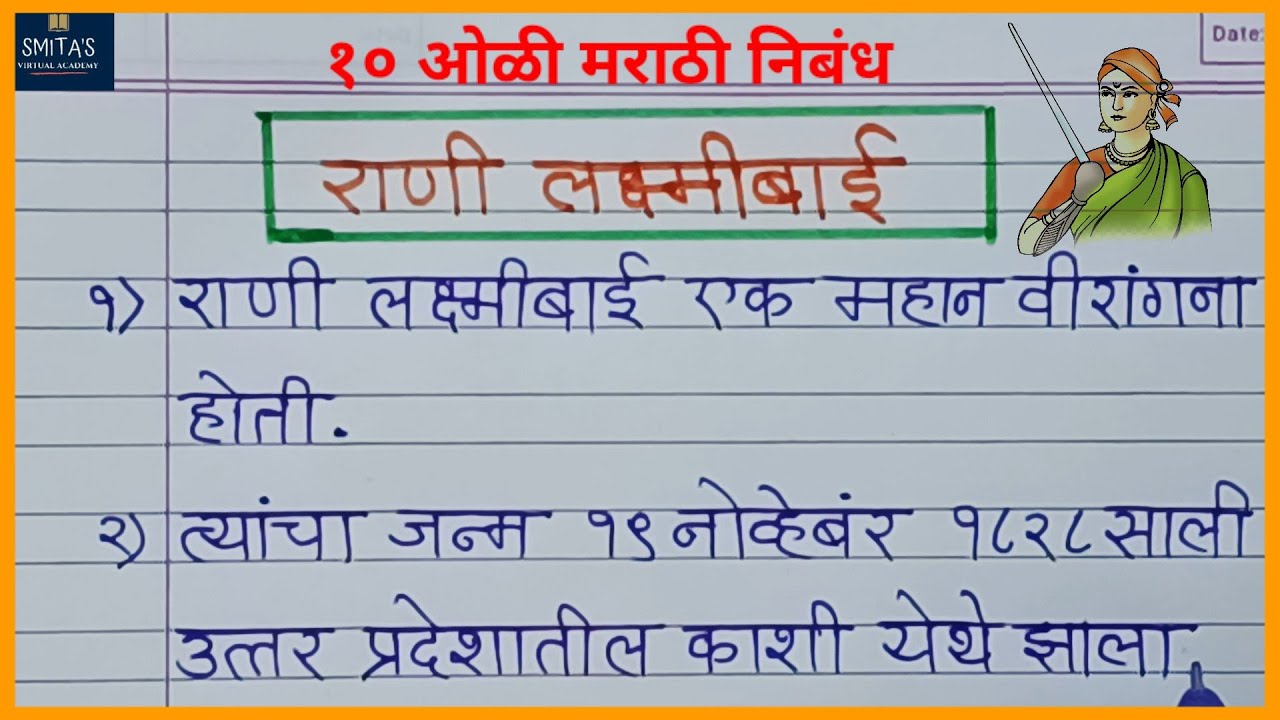 SMITA'S
VIRTUAL ACADEMY
Date:
१० ओळी मराठी निबंध
राणी लक्ष्मीबाई
१) राणी लक्ष्मीबाई एक महान वीरांगना
होती.
२) त्यांचा जन्म १९ नोव्हेबंर १८२८ साली
उत्तर प्रदेशातील काशी येथे झाला.